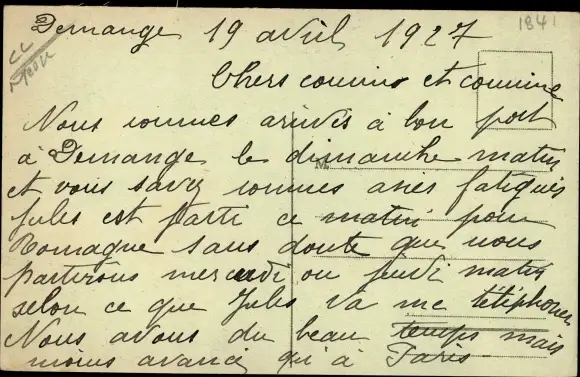 Demange 19 avril 1927
1841
Chers cousins et cousine
Nous sommes arrivés à bon port
à Demange le dimanche matin
M
et vous savez sommes assez fatigués
Jules est parti ce matin pour
Romagne sans doute que nous
partirons mercredi ou jeudi matin
selon ce que Jules va me téléphoner
Nous avons du beau temps mais
moins avancé qu'à Paris